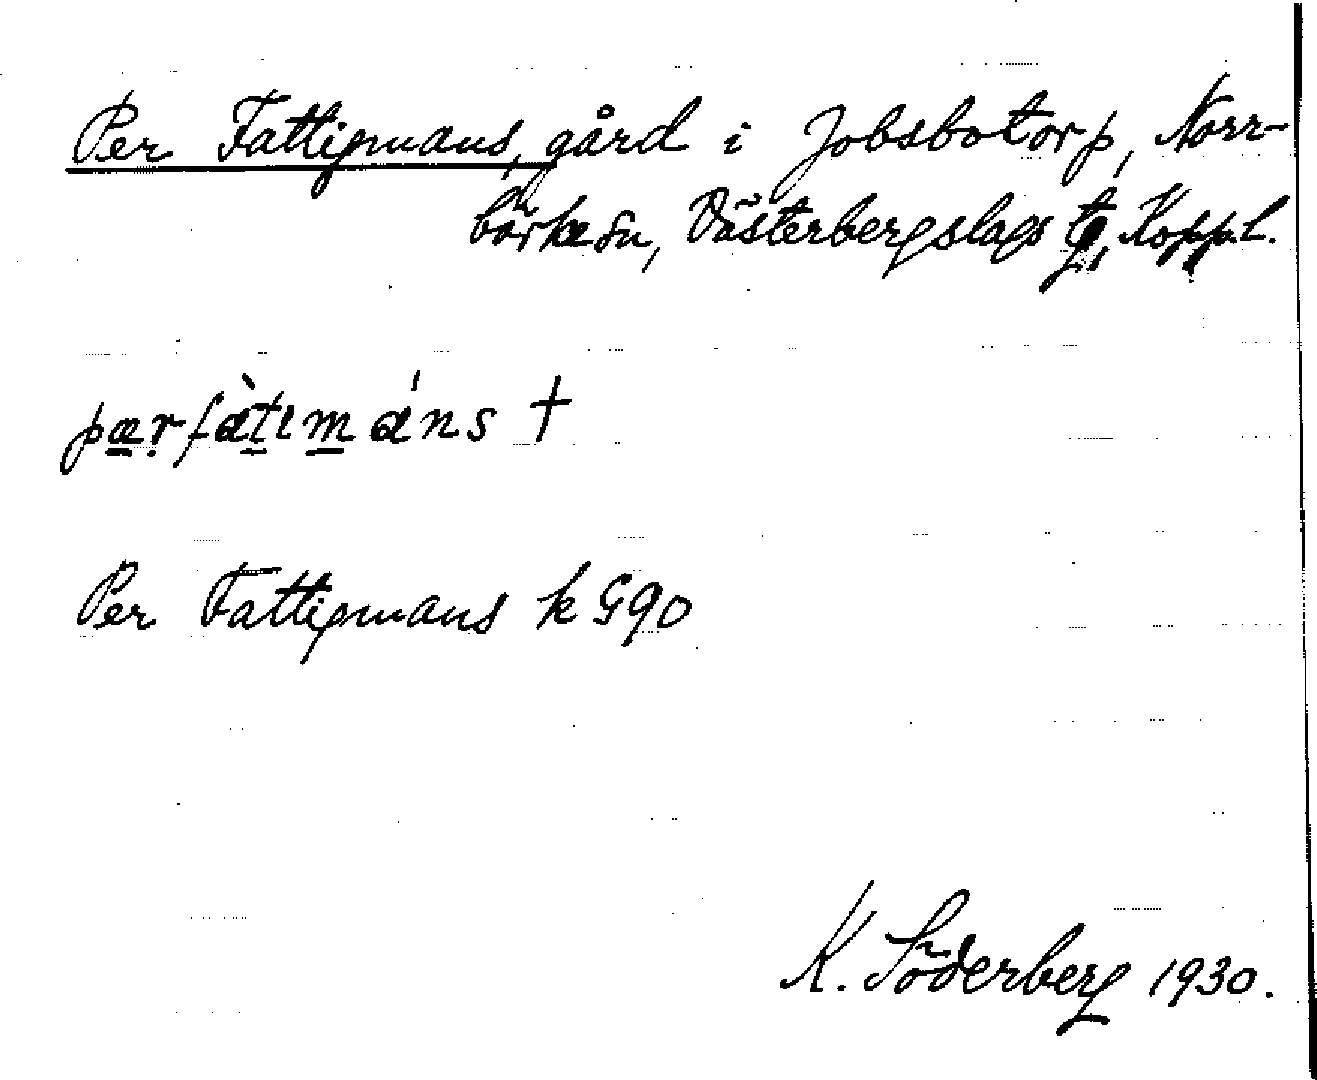 Per Fattigmans, gård i Jobsbotorp, Norr-
bärke sn, Västerbergslags t, Koppl.
pærfàtımáns †
Per Fattigmans k G90
K. Söderberg 1930.